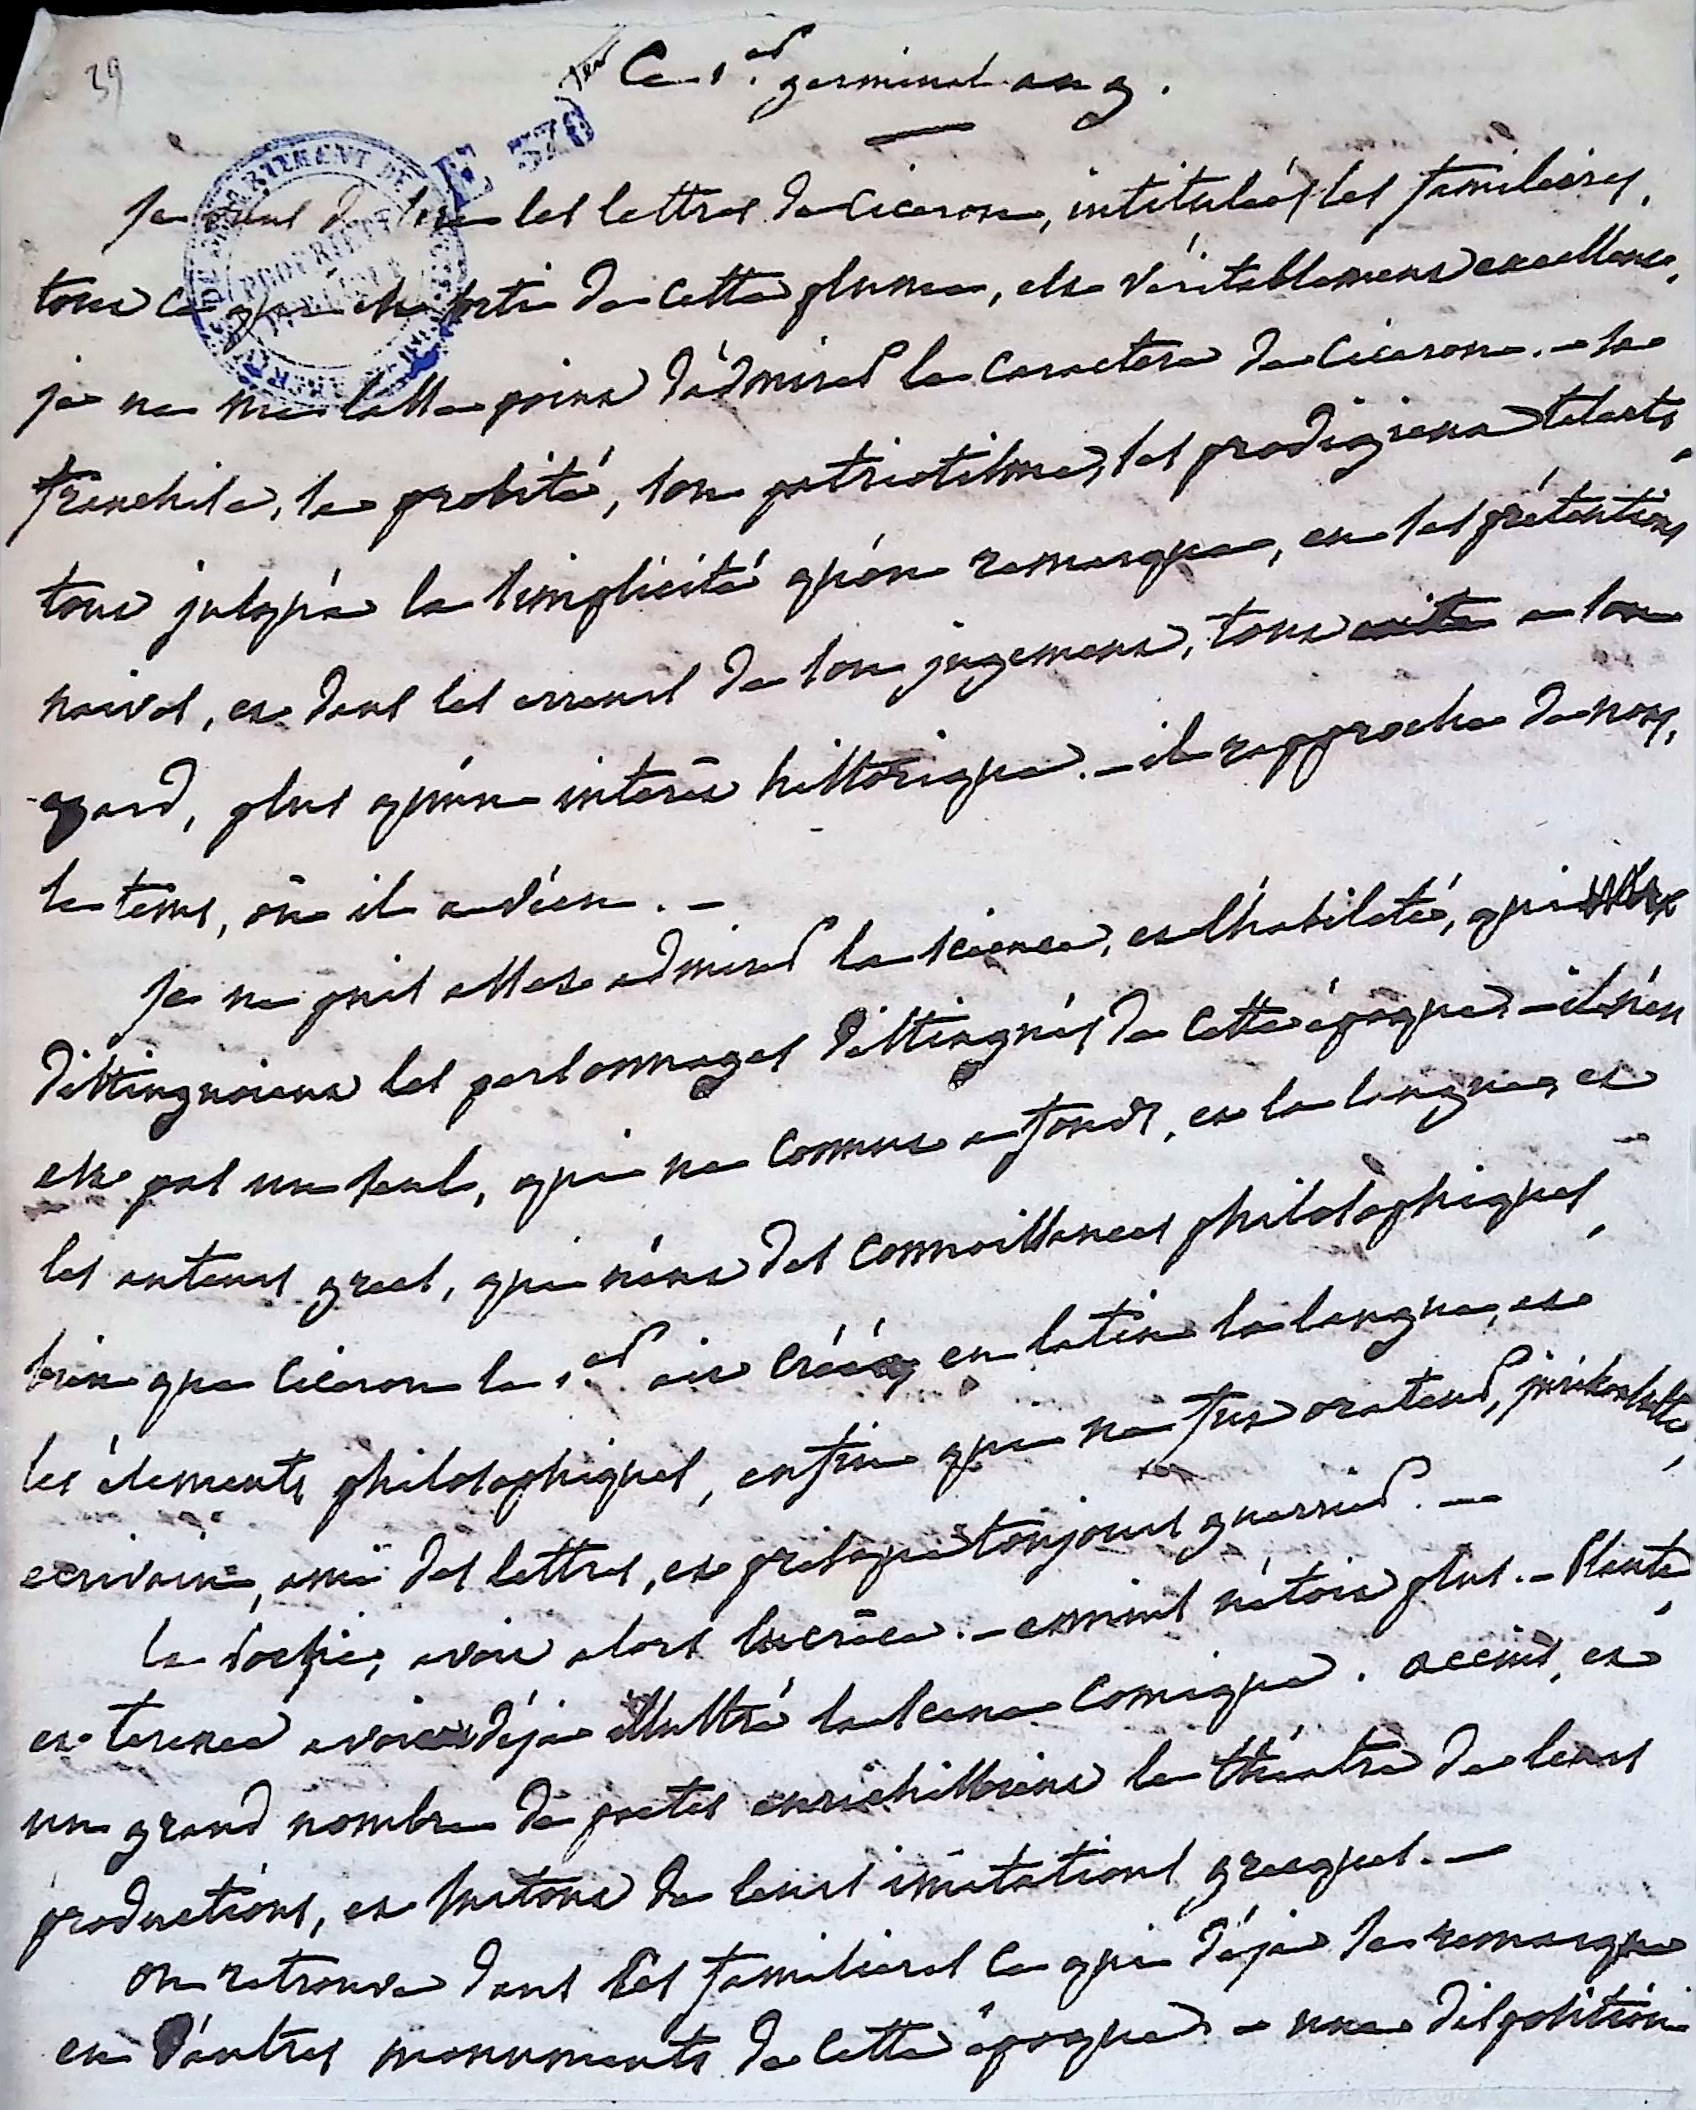 39
Ce 1.er germinal an 9.
E 378 ter
DEPARTEMENT DE
PROPRIÉTÉ
je viens de lire les lettres de Ciceron, intitulées les familières.
tout ce qui est sorti de cette plume, est véritablement excellent.
je ne me lasse point d'admirer le caractere de Ciceron. - sa
franchise, sa probité, son patriotisme, ses prodigieux talents,
tout jusqu'à la simplicité qu'on remarque, en ses prétentions
naives, et dans les erreurs de son jugement, tout a son
egard, plus qu'un interêt historique. - il rapproche de nous,
le tems, où il a vécu. -
je ne puis assez admirer la science, et l'habileté, qui
distinguoient les personnages distingués de cette époque. - il n'en
est pas un seul, qui ne connut a fonds, et la langue, et
les auteurs grecs, qui n'eut des connoissances philosophiques,
bien que Ciceron le 1.er ait créé, en latin la langue, et
les élements philosophiques, enfin qui ne fut orateur, jurisconsulte,
ecrivain, ami des lettres, et presque toujours guerrier. -
la poësie, avoit alors lucrèce. - ennius n'étoit plus. - Plaute,
et terence avoient déja illustré la scene comique. accius, et
un grand nombre de poetes enrichissoient le théatre de leurs
productions, et surtout de leurs imitations grecques. -
on retrouve dans les familieres ce qui déja se remarque
en d'autres monuments de cette époque - une disposition